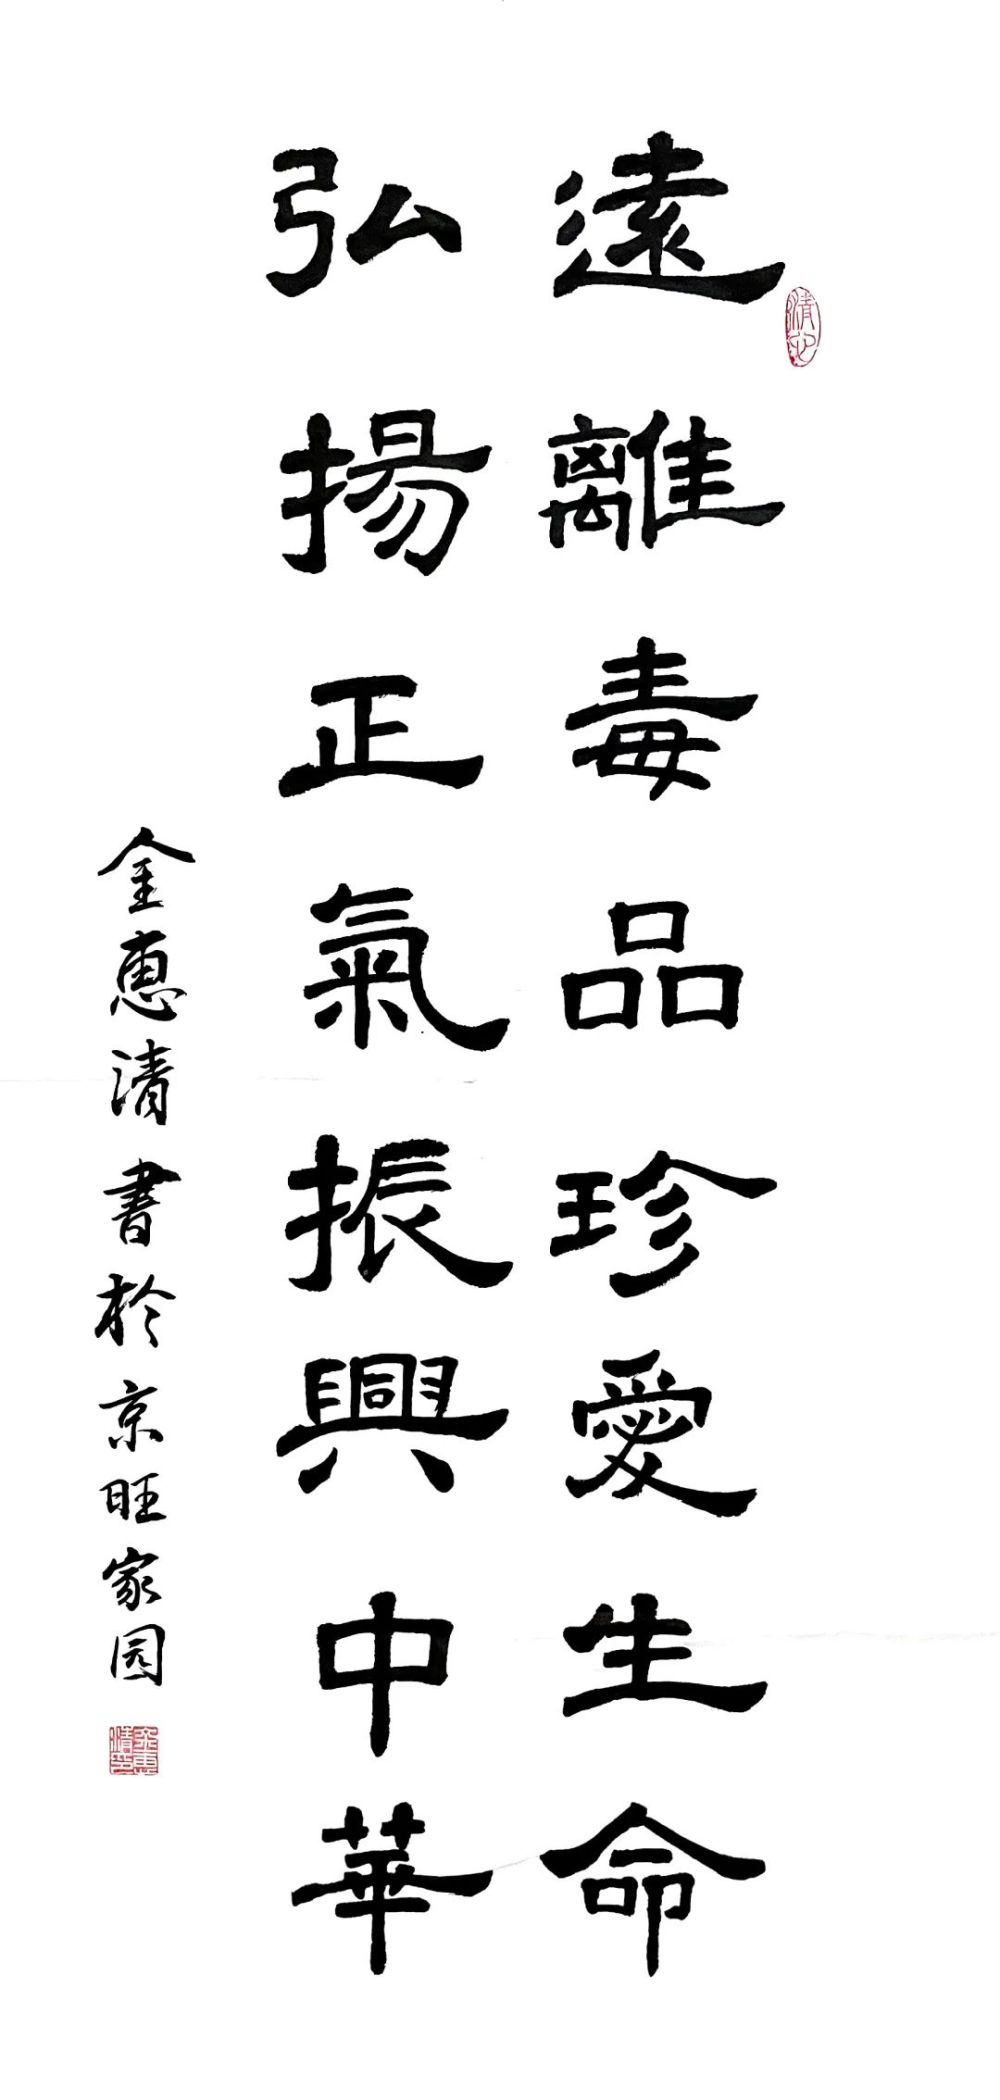 遠離毒品珍愛生命
弘揚正氣振興中華
金惠清書於京旺家园